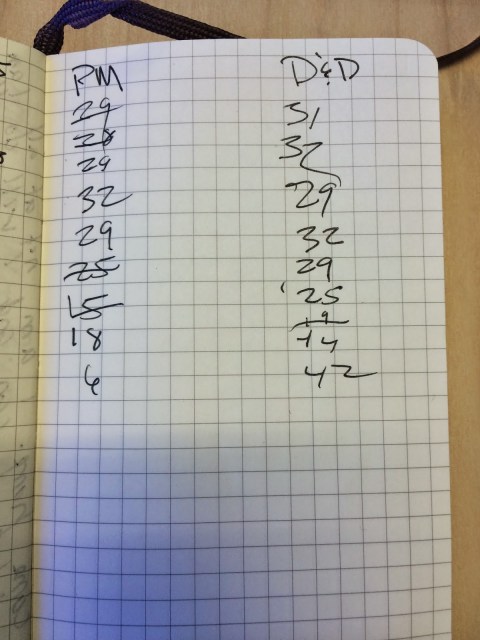 PM D&D
29 31
28 32
29
32 29
29 32
25 29
15 25
19
18 14
6 42